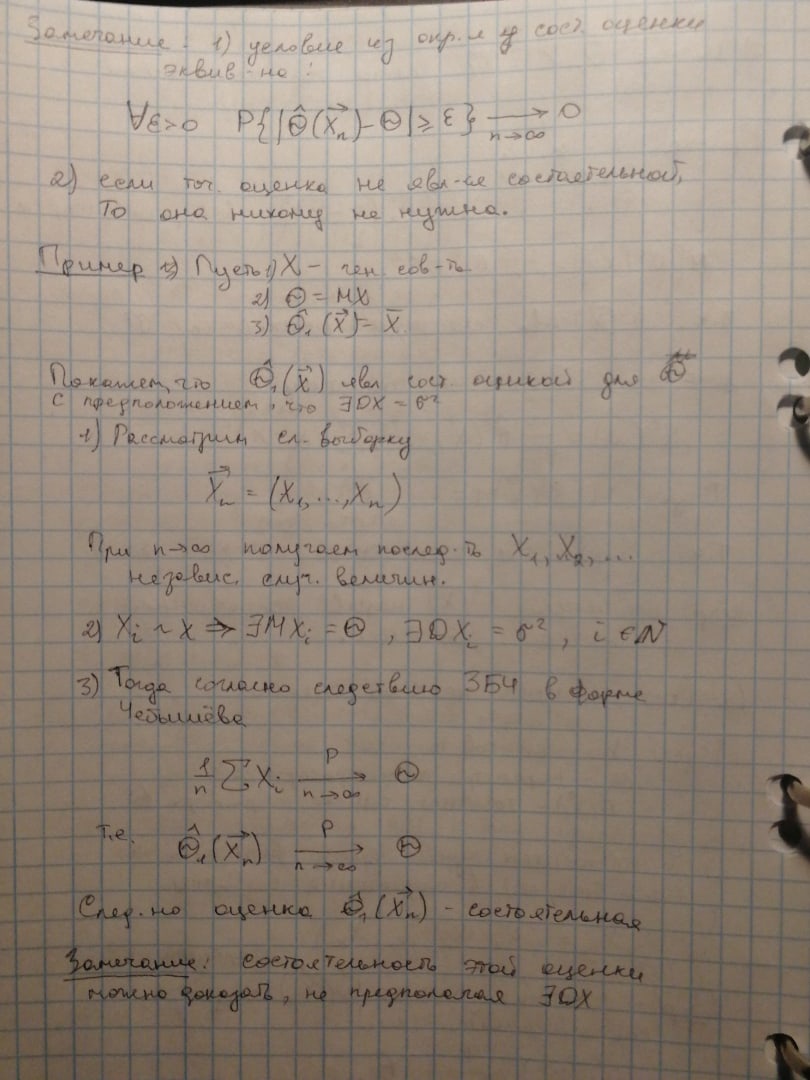 Замечание: 1) условие из опр.я сост. оценки
эквив-но:
∀ε>0 P{|Θ̂(X⃗ₙ)-Θ|≥ε} ⟶ 0
n→∞
2) если точ. оценка не явл-ся состоятельной,
то она никому не нужна.
Пример 1) Пусть 1) X – ген. сов-ть
2) Θ = MX
3) Θ̂₁(X⃗) = X̄
Покажем, что Θ̂₁(X⃗) явл. сост. оценкой для Θ
с предположением, что ∃DX = σ²
1) Рассмотрим сл. выборку
X⃗ₙ = (X₁, ..., Xₙ)
При n→∞ получаем послед-ть X₁, X₂, ...
независ. случ. величин.
2) Xᵢ ~ X ⇒ ∃MXᵢ = Θ, ∃DXᵢ = σ², i ∈ N
3) Тогда согласно следствию ЗБЧ в форме
Чебышёва
1/n ∑ Xᵢ P⟶ n→∞ Θ
т.е. Θ̂₁(X⃗ₙ) P⟶ n→∞ Θ
След-но оценка Θ̂₁(X⃗ₙ) - состоятельная
Замечание: состоятельность этой оценки
можно доказать, не предполагая ∃DX